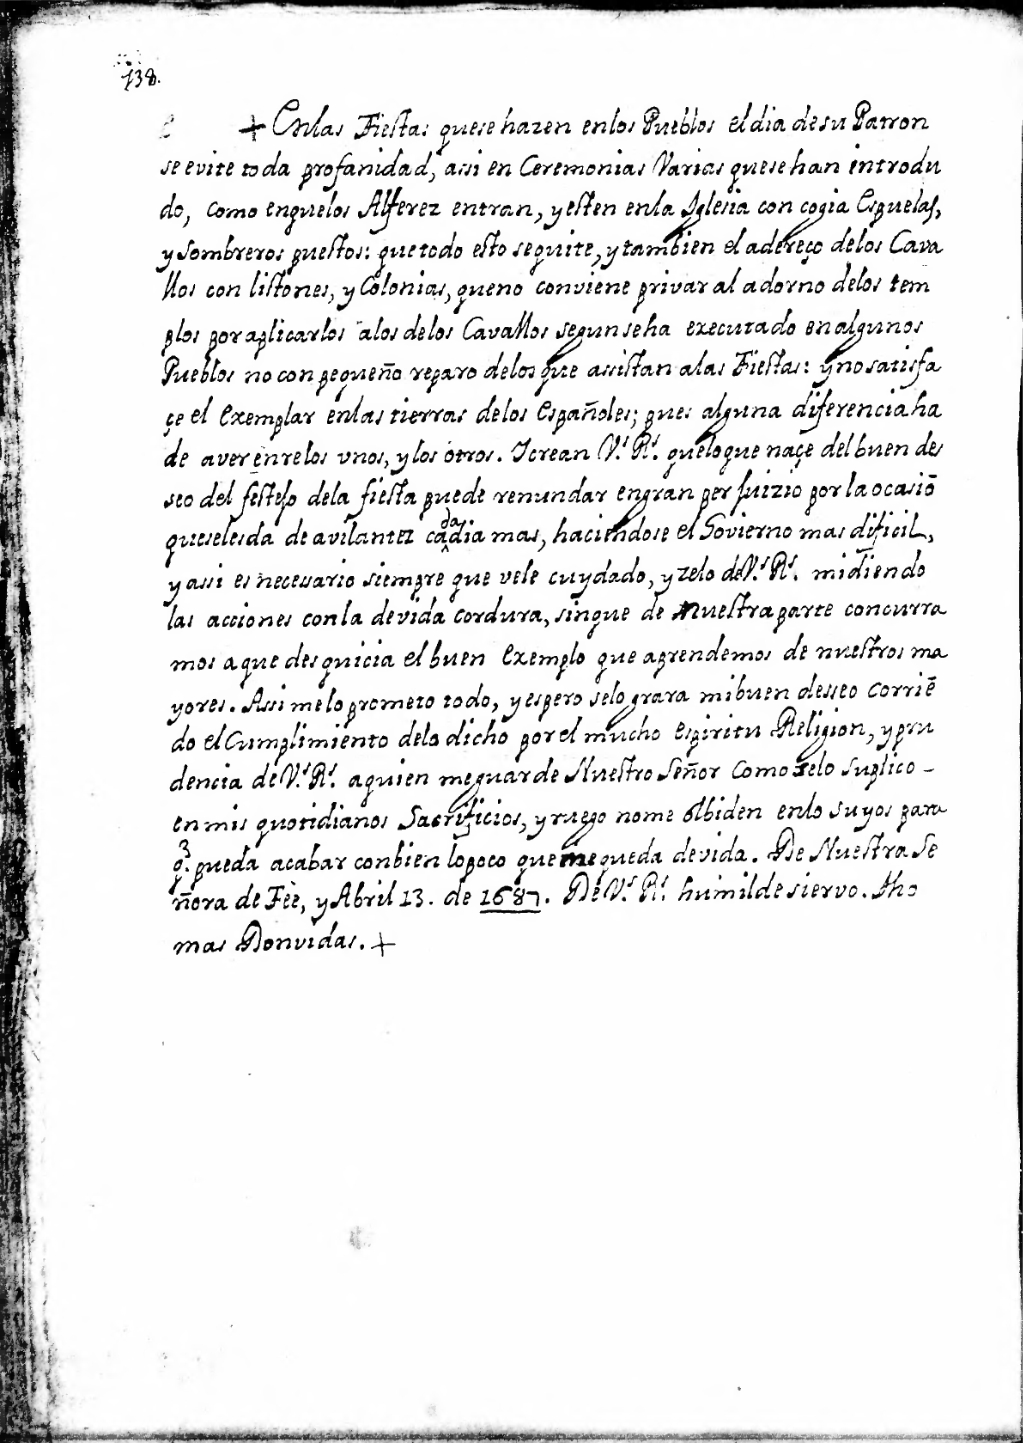 138.
+ Enlas Fiestas quese hazen enlos Pueblos el dia de su Patron
se evite toda profanidad, assi en Ceremonias Varias quese han introdu
do, como enquelos Alferez entran, y esten enla Iglesia con cogia Espuelas,
y Sombreros puestos: quetodo esto sequite, y tambien el adereço delos Cava
llos con listones, y Colonias, queno conviene privar al adorno delos tem
plos por aplicarlos alos delos Cavallos segun seha executado en algunos
Pueblos no con pequeño reparo delos que assistan alas Fiestas: y no satisfa
çe el Exemplar enlas tierras delos Españoles; pues alguna diferencia ha
de aver enrelos vnos, y los otros. I crean V.ˢ R.ˢ queloque naçe del buen des
seo del festejo dela fiesta puede renundar en gran perjuizio por la ocasiō
queselesda de avilantez cadadia mas, haciendose el Govierno mas dificil,
y assi es necessario siempre que vele cuydado, y zelo de V.ˢ R.ˢ. midiendo
las acciones conla devida cordura, sinque de nuestra parte concurra
mos aque desquicia el buen Exemplo que aprendemos de nuestros ma
yores. Assi melo prometo todo, y espero selograra mi buen desseo corriē
do el Cumplimiento delo dicho por el mucho Espiritu Religion, y pru
dencia de V.ˢ R.ˢ. aquien meguarde Nuestro Señor Como selo suplico -
en mis quotidianos Sacrificios, y ruego nome olbiden enlo suyos para
q.ᵉ pueda acabar conbien lopoco que me queda de vida. De Nuestra Se
ñora de Feè, y Abril 13. de 1687. De V.ˢ R.ˢ. humilde siervo. Tho
mas Donvidas. +